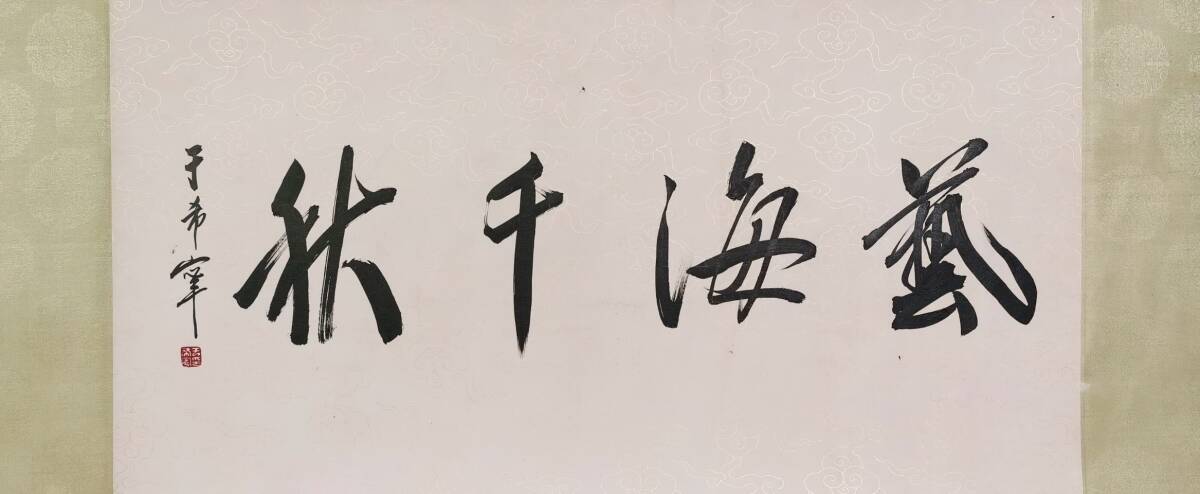 藝海千秋
于希寧